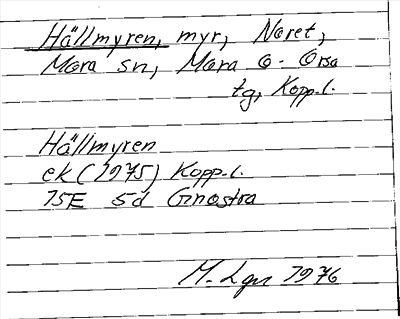 Hällmyren, myr, Noret,
Mora sn, Mora o. Orsa
tg, Kopp.l.
Hällmyren
ek (1975) Kopp.l.
15E 5d Gnostra
M. Lgn 1976